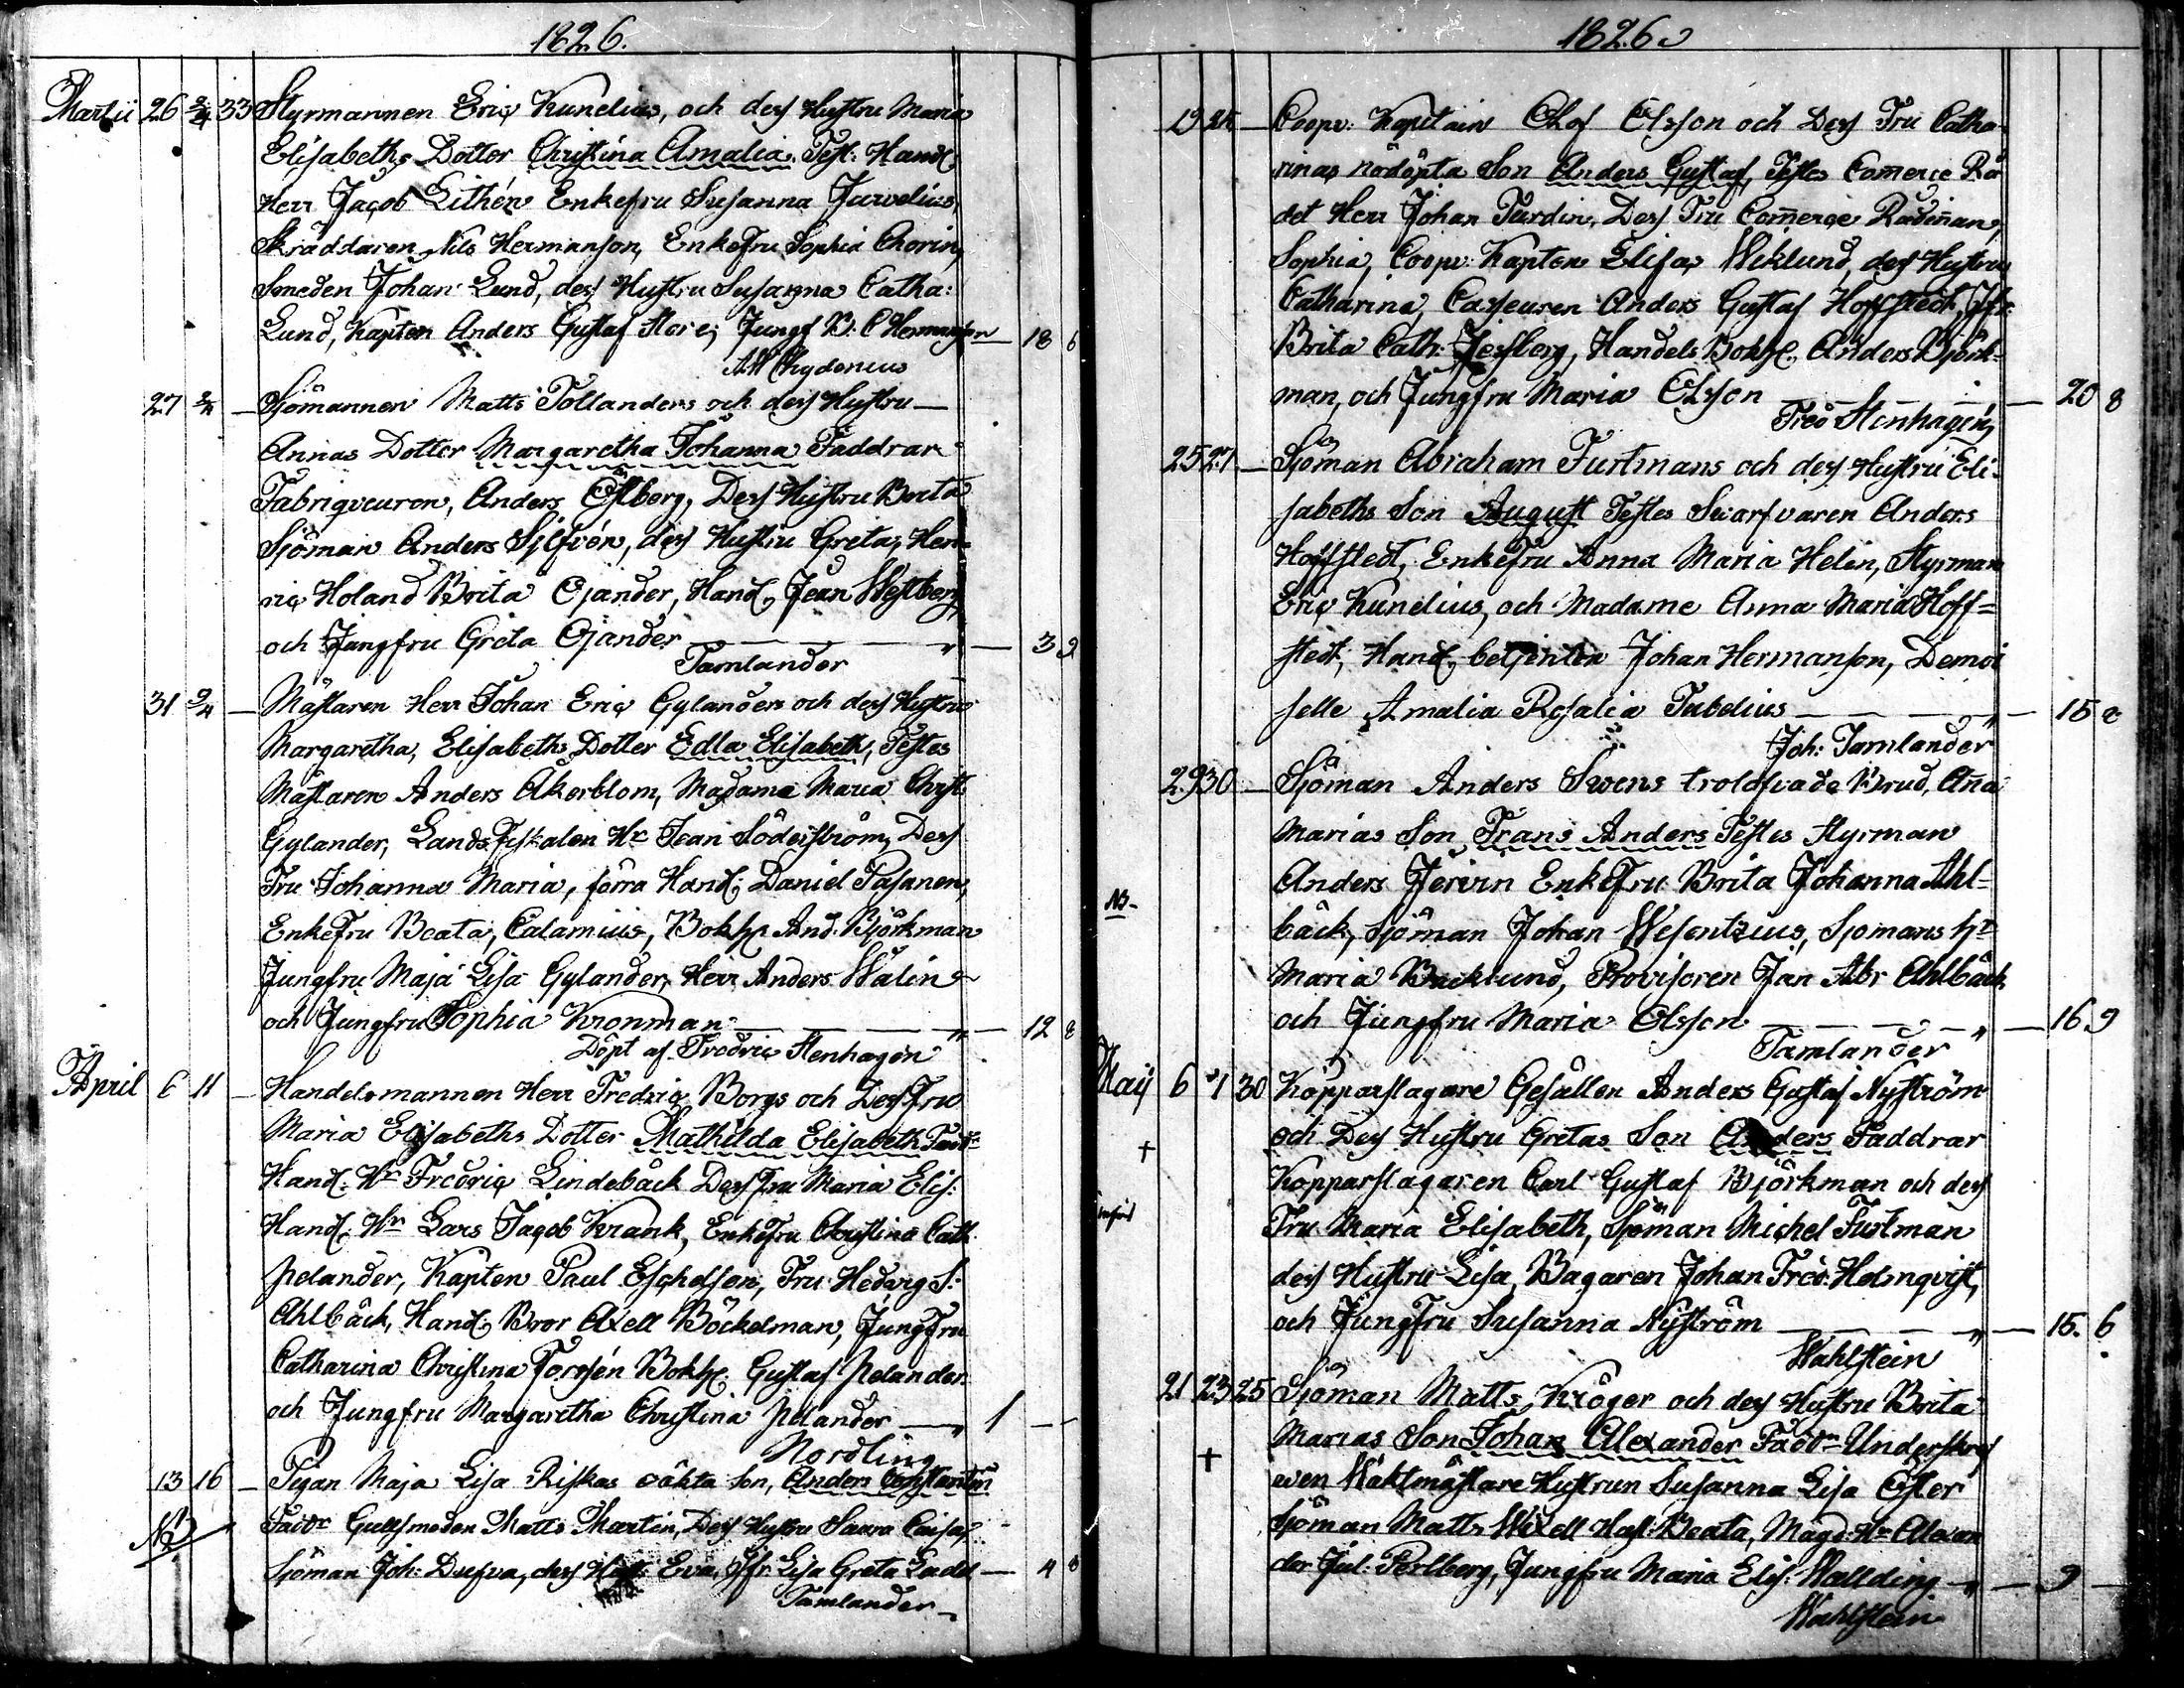 1826.
Martii 26 2/4 33 Styrmannen Eric Kunelius, och dess Hustru Maria
Elisabeths Dotter Christina Amalia. Test: Handl:
Herr Jacob Lithén Enkefru Susanna Jurvelius,
Skräddaren Nils Hermanson, Enkefru Sophia Chorin,
Smeden Johan Lund, dess Hustru Susanna Catha:
Lund, Kapten Anders Gustaf Hore, Jungf B: C Hermanson — 18 6
A W Chydenius
27 2/4 — Sjömannen Matts Tollanders och dess Hustru —
Annas Dotter Margaretha Johanna Faddrar
Fabriqveuren, Anders Östberg, Dess Hustru Brita
Sjöman Anders Sjlfvén, dess Hustru Greta, Hen-
ric Holand Brita Ojander, Handl, Jean Westberg,
och Jungfru Greta Ojander — „ — 3 9
Tamlander
31 9/4 — Mästaren Herr Johan Eric Gylanders och dess Hustru
Margaretha, Elisabeths Dotter Edla Elisabeth, Testes
Mästaren Anders Åkerblom, Madame Maria Christ:
Gylander, Lands Fiskalen Hr Jean Söderström, Dess
Fru Johanna Maria, förra Handl: Daniel Pasanen,
Enkefru Beata, Calamnius, Bokh: And. Björkman
Jungfru Maja Lisa Gylander, Herr Anders Walin
och Jungfru Sophia Kronman — „ — 12 8
Döpt af Fredric Stenhagen
April 6 11 — Handelsmannen Herr Fredric Borgs och Dess Fru
Maria Elisabeths Dotter Mathilda Elisabeth Fadr
Handl: Hr Fredric Lindebäck Dess Fru Maria Elis:
Handl: Hr Lars Jacob Krank, Enkefru Christina Cath
Pelander, Kapten Paul Eschelsen, Fru Hedvig S:
Ahlbäck, Handl: Bror Axell Böckelman, Jungfru
Catharina Christina Forssén Bokh: Gustaf Pelander
och Jungfru Margaretha Christina Pelander — „ 1 —
Nordling
13 16 — Pigan Maja Lisa Riskas oäkta Son, Anders Constantin
NB Fadr Gullsmeden Matts Martin, Dess Hustru Saara Caisa,
Sjöman Joh: Dufva, dess Hustr Eva, Jfr Lisa Greta Ladd — 4
Tamlander
1826.
19 24 — Coopv: Kapitain Olof Olsson och Dess Fru Catha-
rinas nödöpta Son Anders Gustaf, Testes Comerce Rå
det Herr Johan Turdin, Dess Fru Comerce Rådinan,
Sophia, Coopv: Kapten Elisa Weklund, dess Hustru
Catharina, Casseuren Anders Gustaf Hoffstedt, Jfr:
Brita Cath: Jesberg, Handels Bokh: Anders Björk-
man, och Jungfru Maria Olsson — 20 8
Fred Stenhagen
25 27 — Sjöman Abraham Furtmans och dess Hustru Eli-
sabeths Son August Testes Swarfvaren Anders
Hoffstedt, Enkefru Anna Maria Helin, Styrman
Eric Kunelius, och Madame Anna Maria Hoff=
stedt, Handl. betjenten Johan Hermanson, Demoi
selle Amalia Rosalia Tubelius — „ — 15
Joh: Tamlander
29 30 — Sjöman Anders Swens trolofvade Brud, Ana
Marias Son Frans Anders Testes Styrman
Anders Jervin Enkefru Brita Johanna Ahl-
NB — bäck, Sjöman Johan Wesentzius, Sjomans Hr
Maria Backlund, Provisoren Jan Abr Ahlbäck
och Jungfru Maria Olsson — „ — 16 9
Tamlander
Maij 6 30 Kopparslagare Gesällen Anders Gustaf Nyström
+ och Dess Hustru Gretas Son Anders Faddrar
Kopparslagaren Carl Gustaf Björkman och dess
Fru Maria Elisabeth, Sjöman Michel Furtman
dess Hustru Lisa, Bagaren Johan Fred: Holmqvist,
och Jungfru Susanna Nyström — „ — 15. 6
Wahlstein
21 23 25 Sjöman Matts Kröger och dess Hustru Brita
+ Marias Son Johan Alexander Fadr Underskref
wen Waktmästare Hustrun Susanna Lisa Öster
Sjöman Matts Wixell Hust: Beata, Mage: Hr Alexan
der Jul: Perlberg, Jungfru Maria Elis: Wallding — „ — 9 —
Wahlstein